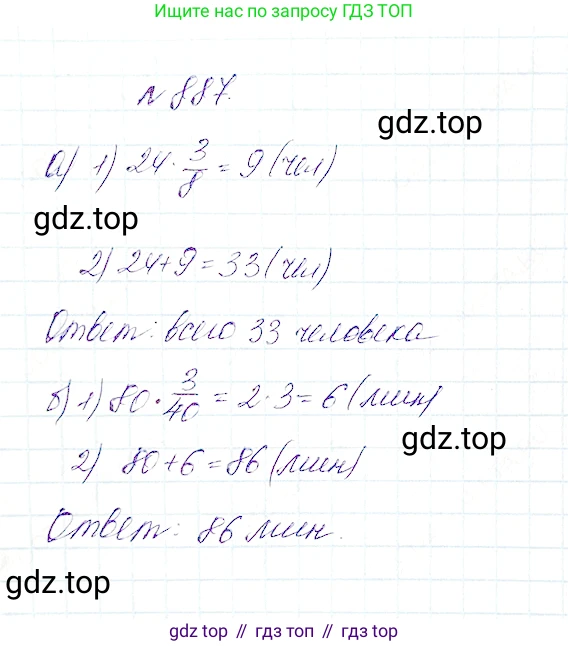 Ищите нас по запросу ГДЗ ТОП
№ 887.
gdz.top
а) 1) 24 · 3/8 = 9 (чел)
gdz.top
2) 24+9=33 (чел)
Ответ: всего 33 человека
б) 1) 80 · 3/40 = 2 · 3 = 6 (мин)
gdz.top
2) 80+6=86 (мин)
Ответ: 86 мин.
gdz.top
gdz top // гдз топ // гдз top